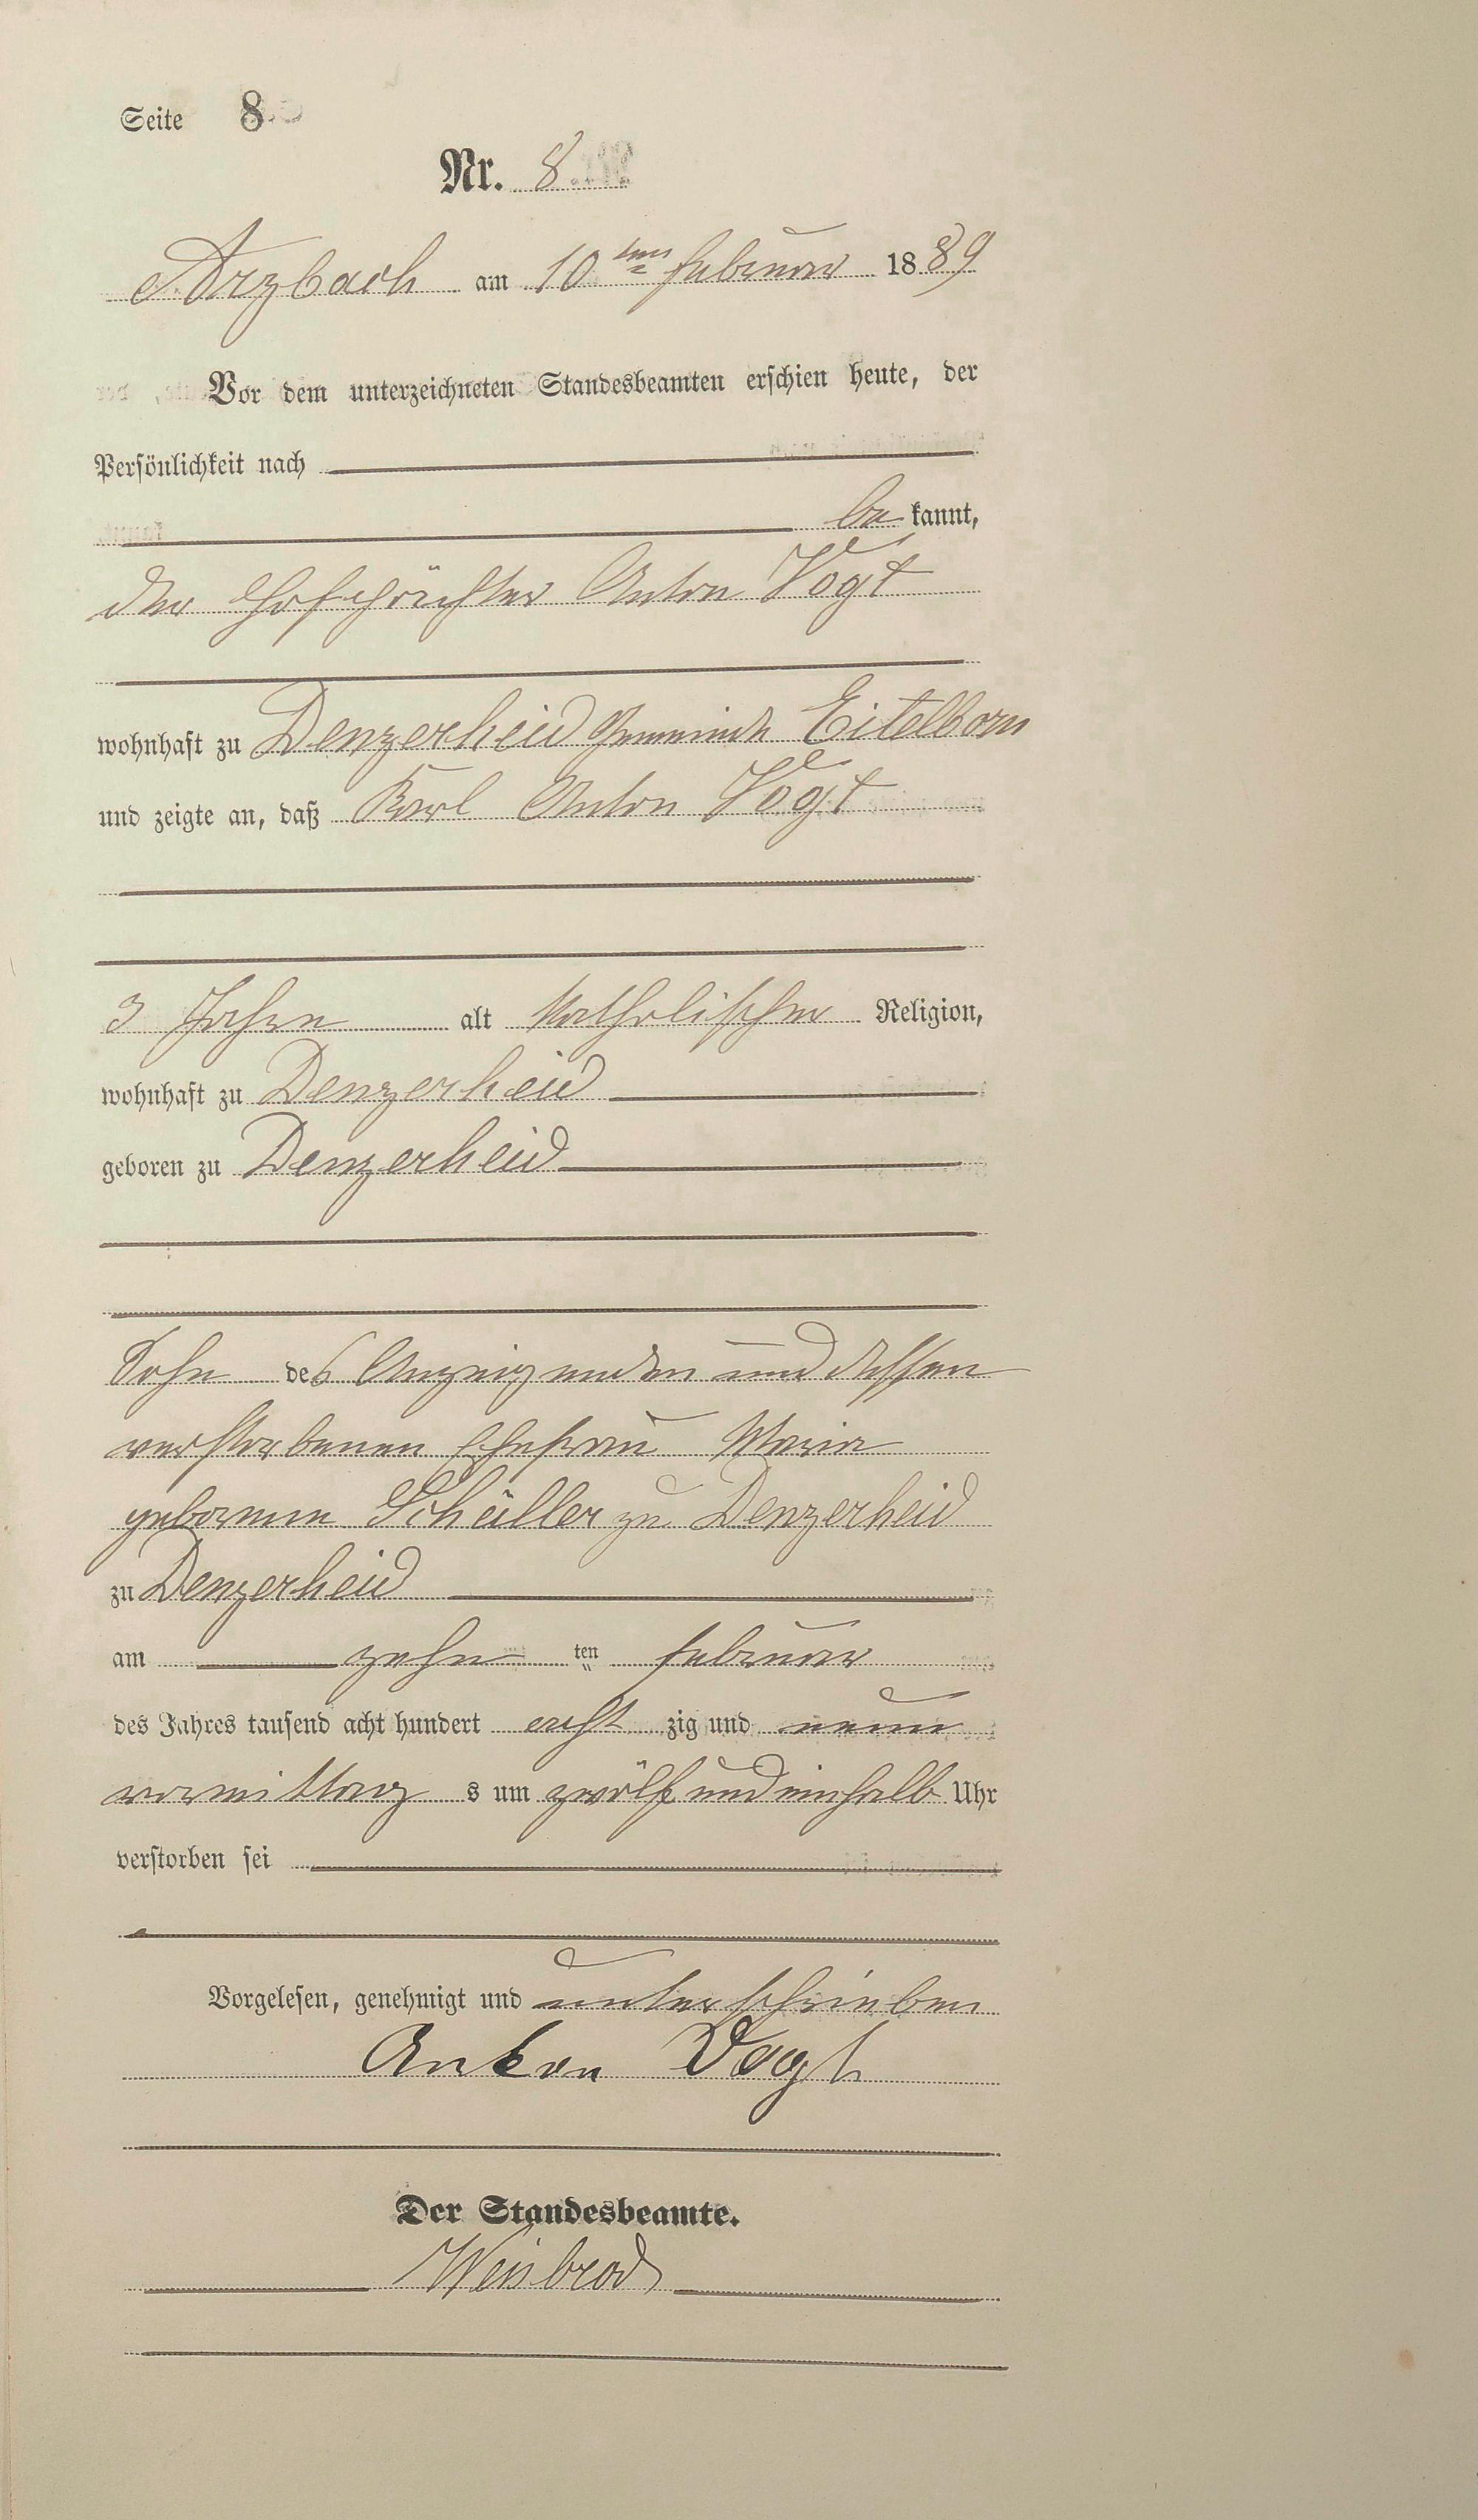 Seite 8
Nr. 8
Arzbach am 10ten Februar 1889
Vor dem unterzeichneten Standesbeamten erschien heute, der
Persönlichkeit nach
be kannt,
der Hofpächter Anton Vogt
wohnhaft zu Denzerheid Gemeinde Eitelborn
und zeigte an, daß Karl Anton Vogt
3 Jahre alt katholischer Religion,
wohnhaft zu Denzerheid
geboren zu Denzerheid
Sohn des Anzeigenden und dessen
verstorbenen Ehefrau Maria
geborenen Schüller zu Denzerheid
zu Denzerheid
am zehn ten Februar
des Jahres tausend acht hundert acht zig und neun
vormittag s um zwölf und einhalb Uhr
verstorben sei
Vorgelesen, genehmigt und unterschrieben
Anton Vogt
Der Standesbeamte.
Weisbrod